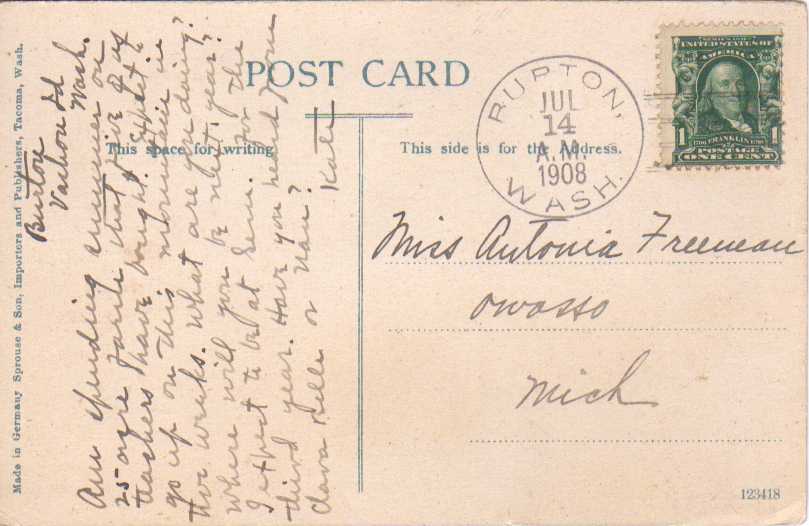 POST CARD
This space for writing
This side is for the Address.
Made in Germany Sprouse & Son, Importers and Publishers, Tacoma, Wash.
Burton
Vashon Id
Wash.
Am spending summer on
25 acre farm that five of us
teachers have bought. Expect to
go up on this mountain in
two weeks. What are you doing?
Where will you be next year?
I expect to be at Sem. for the
third year. Have you heard from
Clara Belle or Nan?
Kate
BURTON,
JUL
14
A.M.
1908
WASH.
SERIES 1902
UNITED STATES OF
AMERICA
1 1
FRANKLIN
POSTAGE
ONE CENT
Miss Antonia Freeman
Owosso
Mich
123418